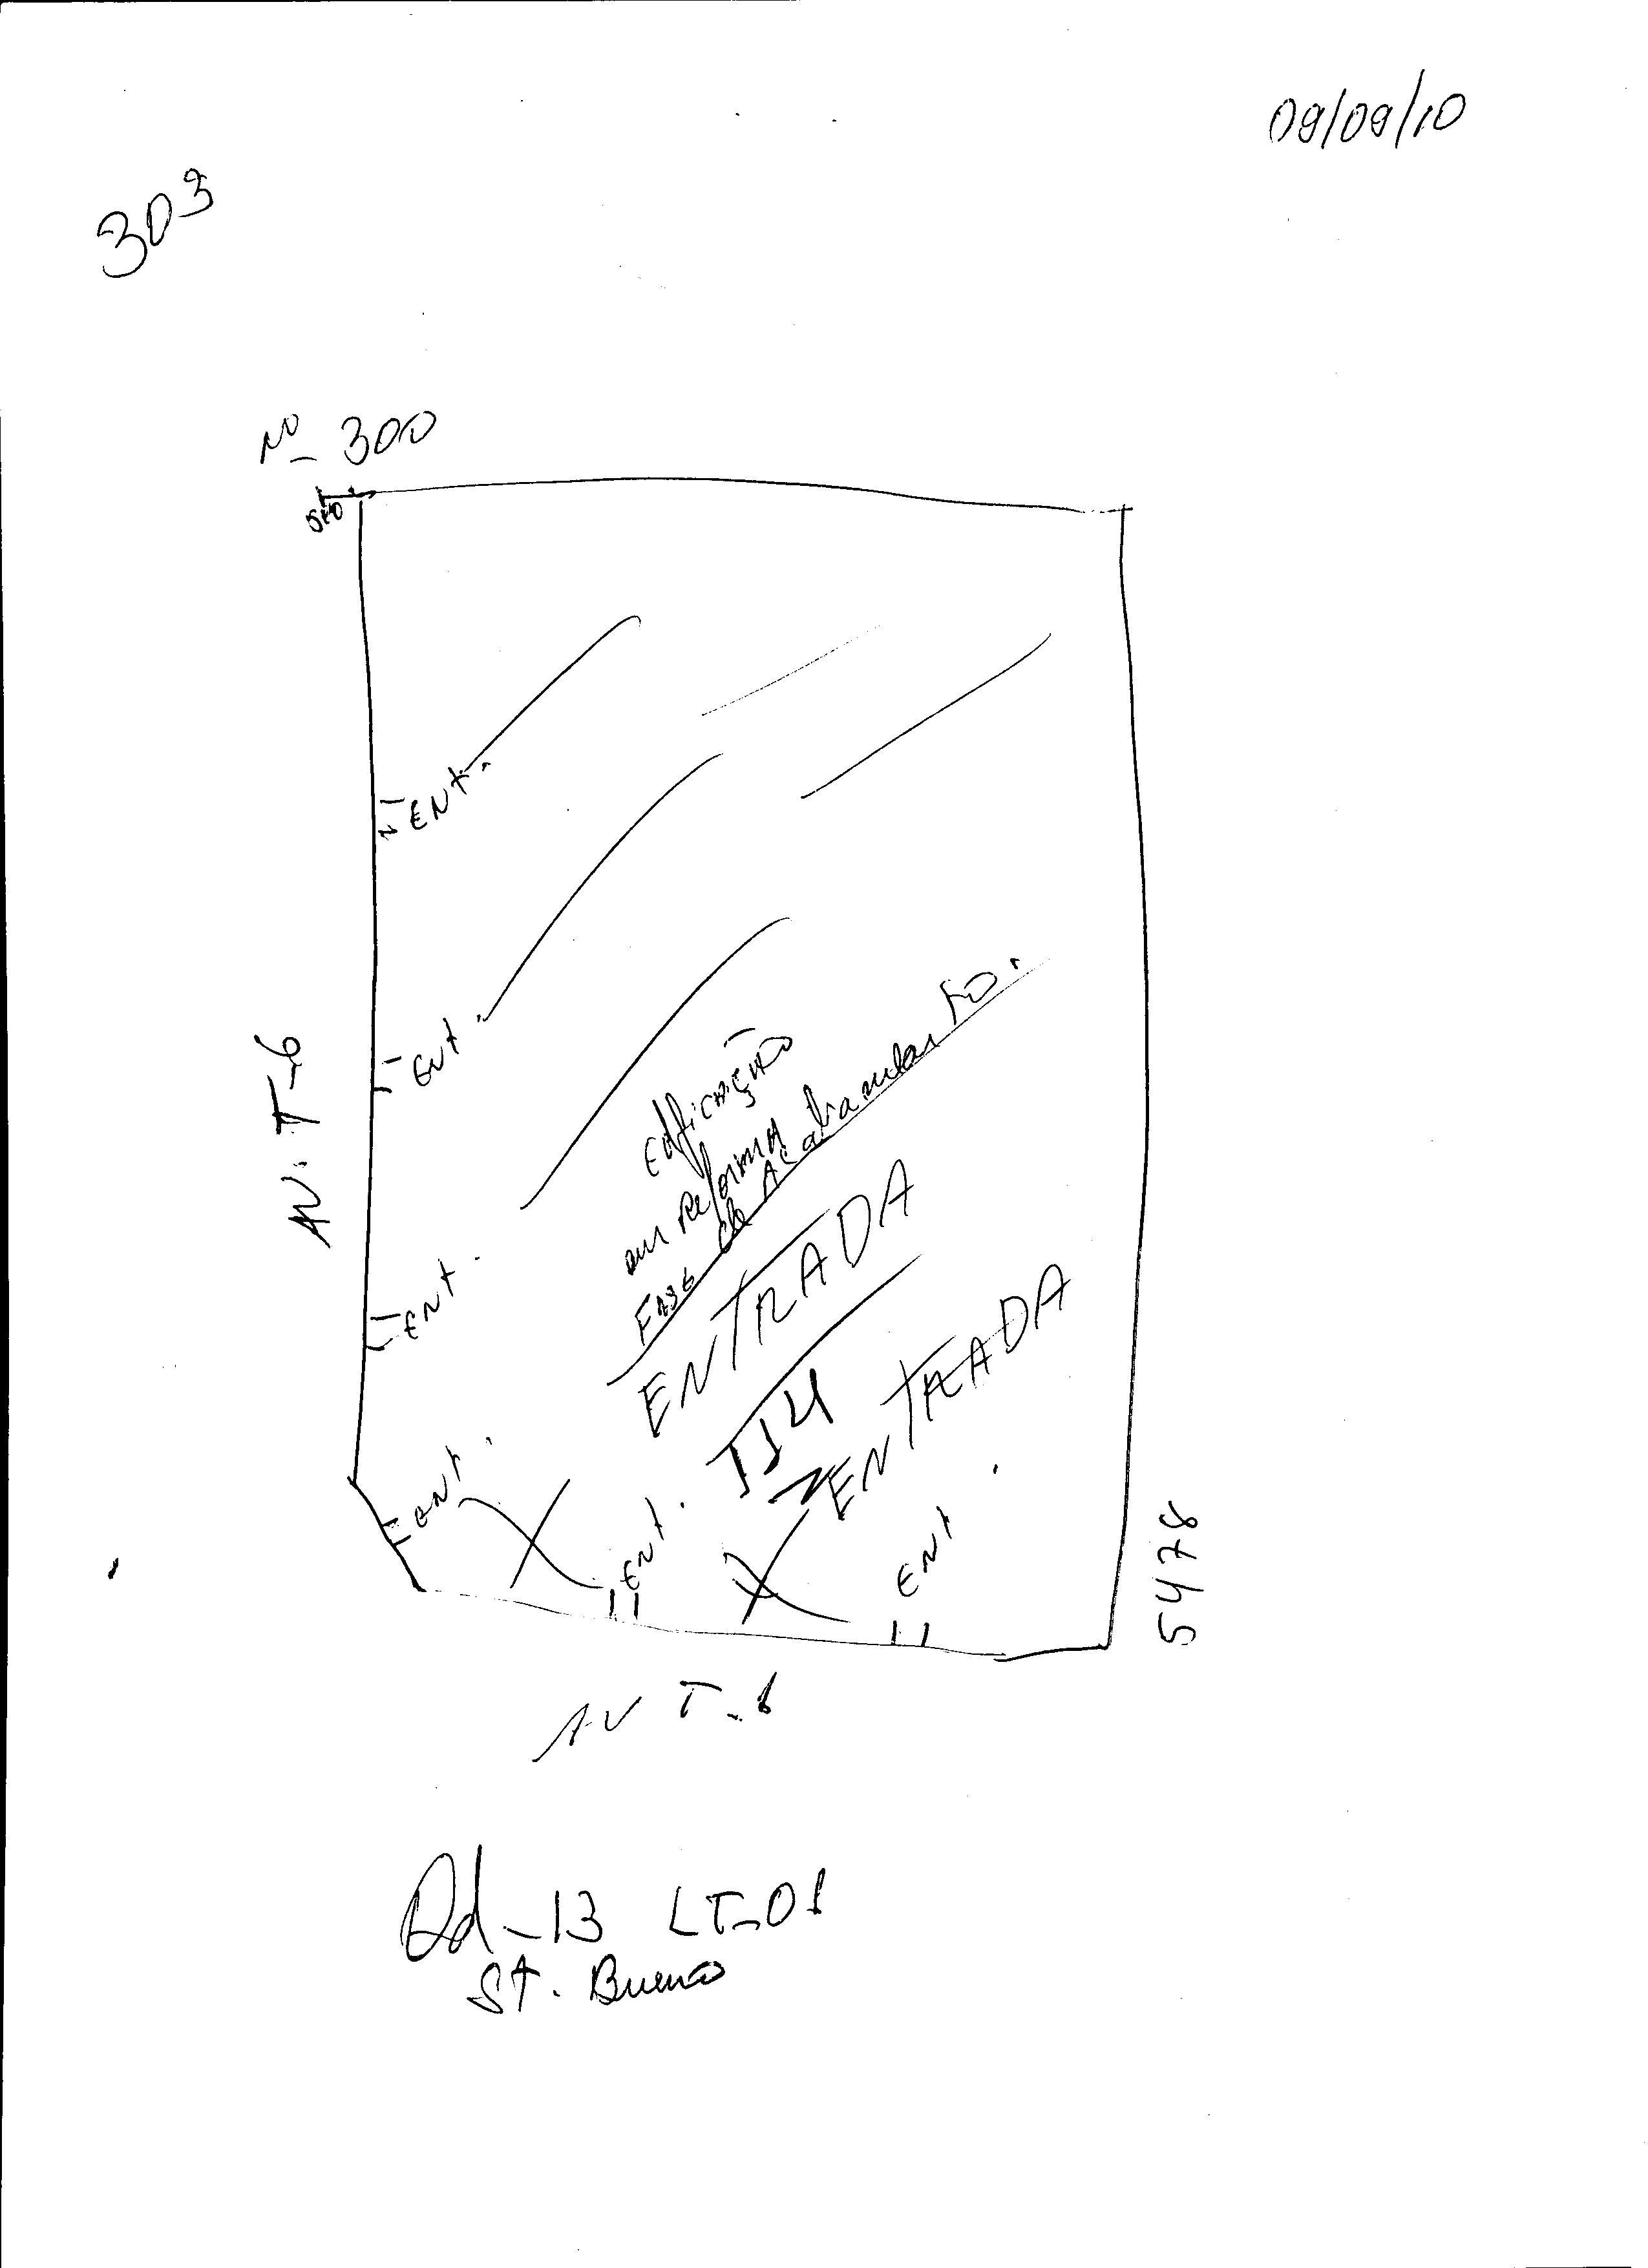 09/09/10
303
Nº 300
5,40
ENT.
ENT.
AV. T-6
Edificação
em Reforma
Fase de Acabamento.
ENTRADA
ENT.
114
ENTRADA
ENT.
ENT.
ENT
5478
AV T-1
Qd-13 LT-01
St. Bueno